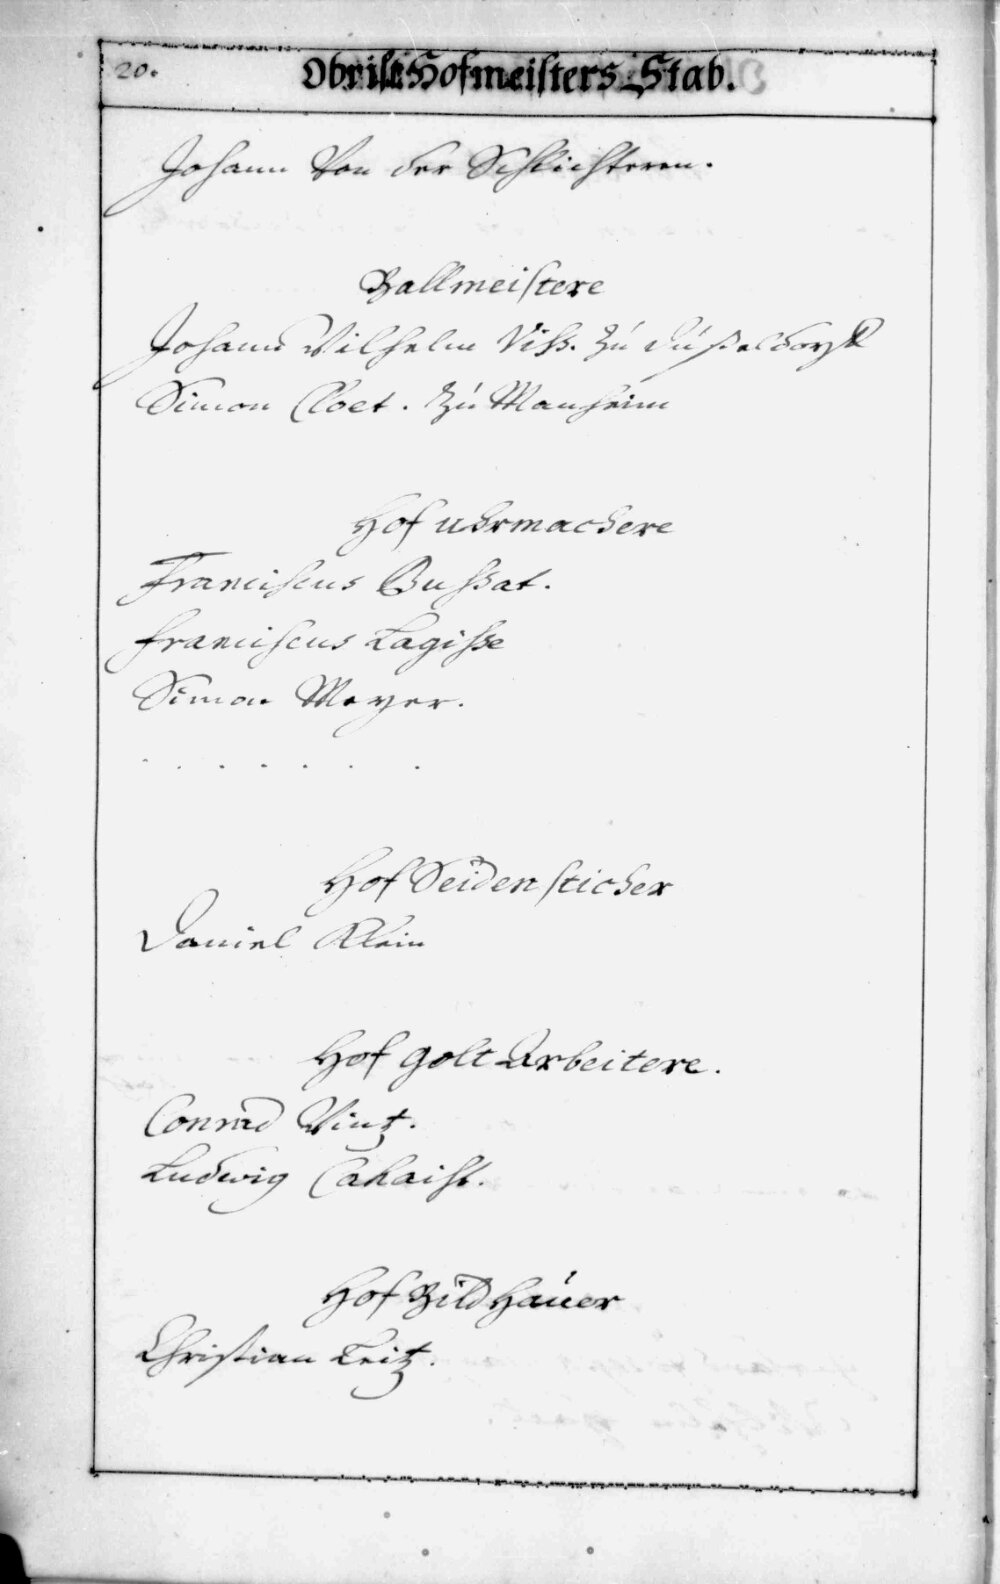 20. Obrist Hofmeisters Stab.
Johann Von der Schlichteren.
Ballmeistere
Johann Wilhelm Viss. zu Düsseldorff
Simon Cloet. zu Manheim
Hof uhrmachere
Franciscus Bussat.
franciscus Lagisse
Simon Meyer.
. . . . . . .
Hof Seidensticher
Daniel Klein
Hof golt Arbeitere.
Conrad Wintz.
Ludwig Cahaist.
Hof Bildhauer
Christian Litz.